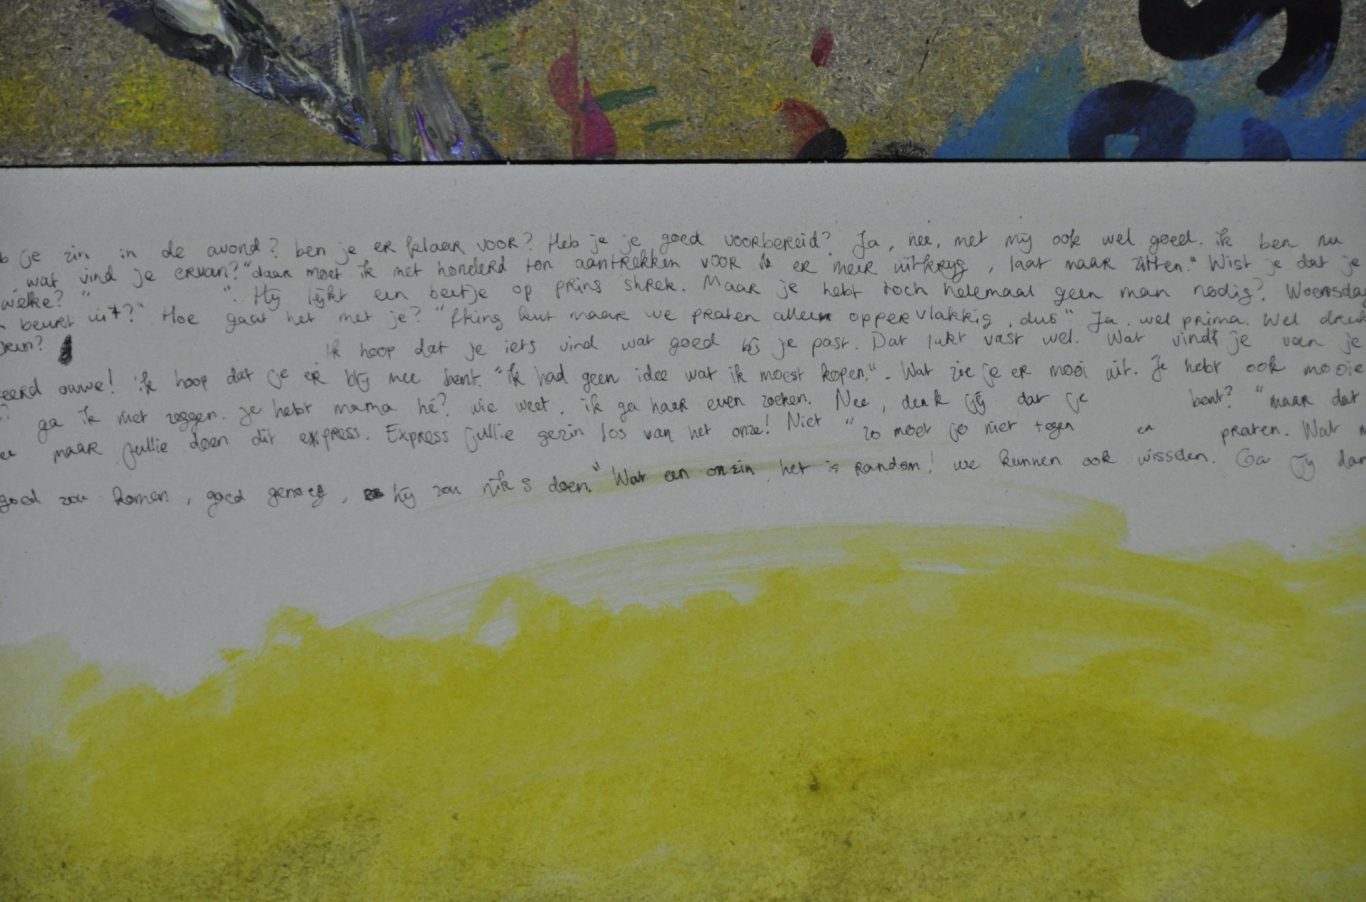 je zin in de avond? ben je er klaar voor? Heb je je goed voorbereid? Ja, nee, met mij ook wel goed. ik ben nu
wat vind je ervan?" daar moet ik met honderd ton aantrekken voor ik er meer uitkrijg, laat maar zitten." Wist je dat je
welke? " ". Hij lijkt een beetje op prins shrek. Maar je hebt toch helemaal geen man nodig? Woensda
beurt uit?" Hoe gaat het met je? "fking kut maar we praten alleen oppervlakkig, dus" Ja, wel prima. Wel druk
Ik hoop dat je iets vind wat goed bij je past. Dat lukt vast wel. Wat vindt je van je
eerd ouwe! ik hoop dat je er blij mee bent. "ik had geen idee wat ik moest kopen.". Wat zie je er mooi uit. Je hebt ook mooie
? ga ik niet zeggen. je hebt mama hé? wie weet, ik ga haar even zoeken. Nee, denk jij dat je bent? "maar dat
maar jullie doen dit express. Express jullie gezin los van het onze! Niet "zo moet je niet tegen en praten. Wat
goed zou komen, goed genoeg, hij zou niks doen." Wat een onzin, het is random! we kunnen ook wisselen. Ga jij dan